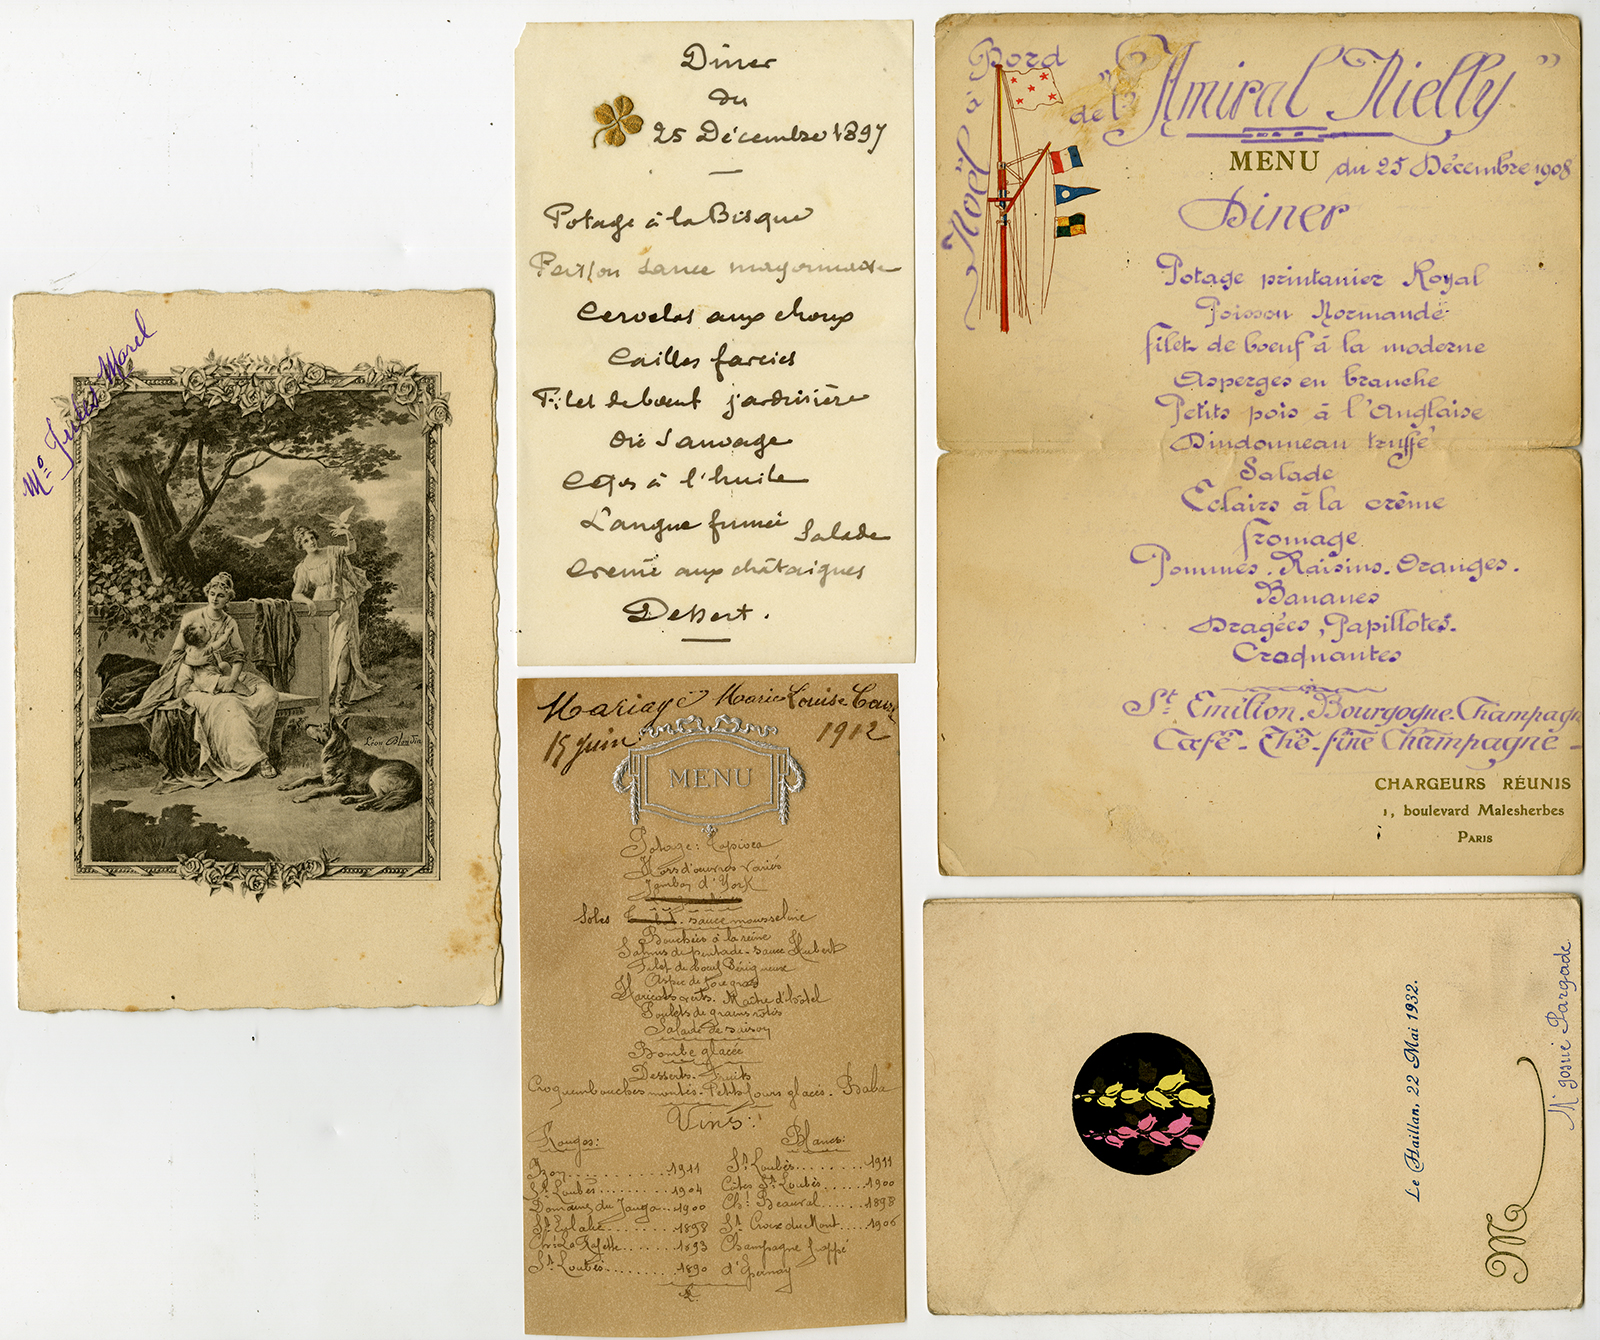 Mr Jules Morel
Léon
Diner
du
25 Décembre 1897
Potage à la Bisque
Poisson sauce mayonnaise
Cervelas aux choux
Cailles farcies
Filet de bœuf jardinière
Oie sauvage
Céps à l'huile
Langue fumée Salade
Creme aux châtaignes
Dessert.
Mariage Marie Louise
15 Juin 1912
MENU
Potage: Tapioca
Hors d'œuvres variés
Jambon d'York
Soles sauce mousseline
Bouchées à la reine
Salmis de pintade - sauce Hubert
Filet de bœuf Périgueux
Aspic de foie gras
Haricots verts. Maître d'hôtel
Poulets de grains rôtis
Salade de saison
Bombe glacée
Desserts. Fruits
Croquembouches montés. Petits fours glacés. Baba
Vins:
Rouges: Blancs:
Izon 1911 St Loubès 1911
St Loubès 1904 Côtes St Loubès 1900
Domaine du 1900 Cht Beauval 1898
Ste Eulalie 1898 Ste Croix du Mont 1906
1893 Champagne frappé
St Loubès 1890 d'Epernay
Noël à Bord
de l' "Amiral Nielly"
MENU du 25 Décembre 1908
Diner
Potage printanier Royal
Poisson Normande
Filet de boeuf à la moderne
Asperges en branche
Petits pois à l'Anglaise
Dindonneau truffé
Salade
Eclairs à la crême
Fromage
Pommes. Raisins. Oranges.
Bananes
Dragées, Papillotes.
Craquantes
St Emilion. Bourgogne. Champagne
Café - Thé - fine Champagne -
CHARGEURS RÉUNIS
1, boulevard Malesherbes
PARIS
Le Haillan, 22 Mai 1932.
M
Mr Josué Pargade